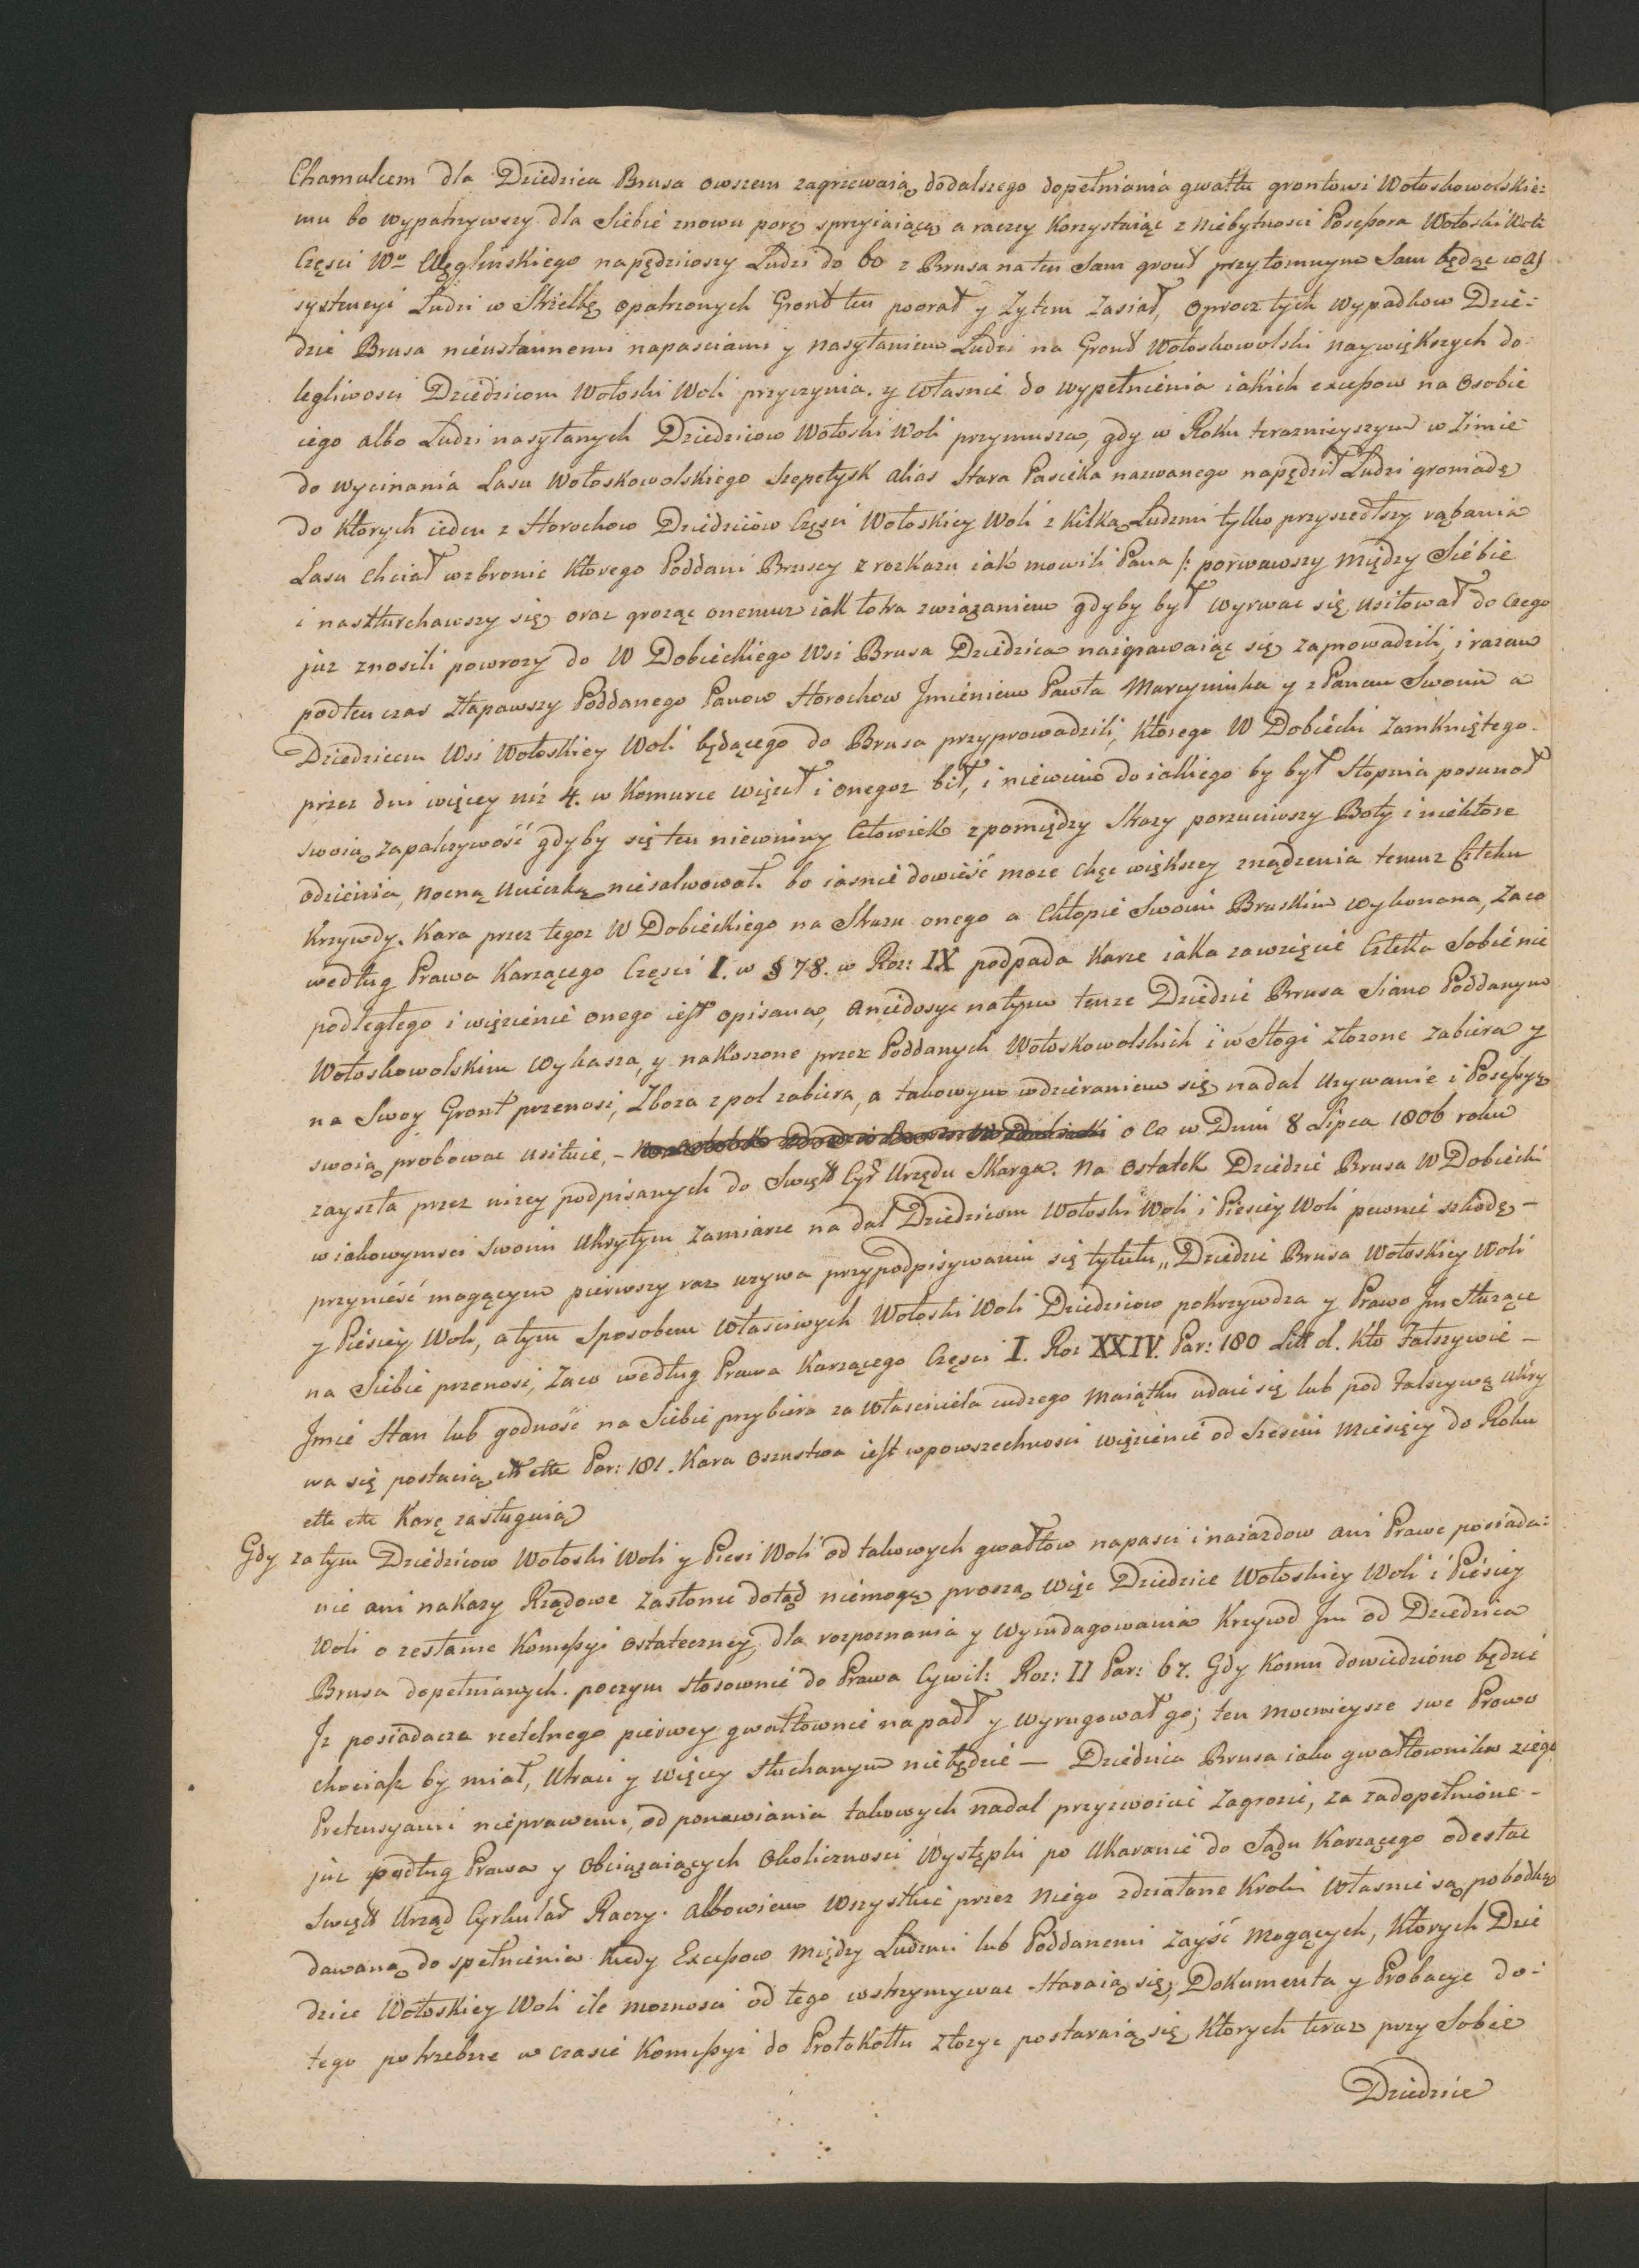 Chamulcem dla Dziedzica Brusa owszem zagrzewaią dodalszego dopełniania gwałtu grontowi Wołoskowolskie:
mu bo wypatrzywszy dla Siebie znowu porę sprzyiaiącę a raczey korzystaiąc z niebytnosci Possessora Wołoski Woli
Częsci Wo Węglinskiego napędziwszy Ludzi do 60 z Brusa na ten Sam gront przytomnym Sam będąc w as
systencyi Ludzi w Strzelbę opatrzonych Gront ten poorał y Zytem Zasiał, oprocz tych wypadkow Dzie-
dzic Brusa nieustannemi napasciami y nasyłaniem Ludzi na Gront Wołoskowolski naywiększych do-
legliwosci Dziedzicom Wołoski Woli przyczynia. y własnie do wypełnienia iakich excessow na osobie
iego albo Ludzi nasyłanych Dziedzicow Wołoski Woli przymusza, gdy w Roku teraznieyszym w Zimie
do wycinania Lasu Wołoskowolskiego Szepetysk alias Stara Pasieka nazwanego napędził Ludzi gromadę
do ktorych ieden z Horochow Dziedziców Częsci Wołoskiey Woli z kilką Ludzmi tylko przyszedłszy rąbania
Lasu chciał wzbronic ktorego Poddani Bruscy z rozkazu iak mowili Pana /: porwawszy między Siebie
i naszturchawszy się oraz grożąc onemuz iak łotra związaniem gdyby był wyrwac się usiłował do czego
juz znosili powrozy do W Dobieckiego Wsi Brusa Dziedzica naigrawaiąc się zaprowadzili, i razem
podten czas złapawszy Poddanego Panow Horochow Jmieniem Pawła Marcyniuka y z Panem Swoim a
Dziedzicem Wsi Wołoskiey Woli będącego do Brusa przyprowadzili, ktorego W Dobiecki zamkniętego
przez dni więcey niż 4. w Komurce więził i onegoz bił, i niewiem do iakiego by był Stopnia posunoł
swoią zapalczywość gdyby się ten niewinny Człowiek zpomiędzy Skazy porzuciwszy Boty i niektore
odzienia, nocną ucieczką niesalwował. bo iasnie dowieść moze chęc większey znądzenia temuz Człeku
Krzywdy. Kara przez tegoz W Dobieckiego na Skazu onego a Chłopie Swoim Bruskim wykonana, Zaco
według Prawa Karzącego Części I. w § 78. w Roz: IX podpada karze iaka zawzięcie Człeka Sobie nie
podległego i więzienie onego iest opisana, a niedosyc natym tenze Dziedzic Brusa Siano Poddanym
Wołoskowolskim wykasza, y nakoszone przez Poddanych Wołoskowolskich i w Stogi złozone zabiera y
na Swoy Gront przenosi, Zboza z pol zabiera, a takowym wdzieraniem się nadal uzywanie i Possessyę
swoią probowac usiłuie, - o co w Dniu 8 Lipca 1806 roku
zayszła przez nizey podpisanych do Święt Cyr Urzędu Skarga. Na ostatek Dziedzic Brusa W Dobiecki
w iakowymsci Swoim ukrytym zamiarze na dal Dziedzicom Wołoski Woli i Piesiey Woli pewnie szkodę -
przynieść mogącym pierwszy raz uzywa przypodpisywaniu się tytułu „Dziedzic Brusa Wołoskiey Woli
y Piésiey Woli, a tym Sposobem własciwych Wołoski Woli Dziedzicow pokrzywdza y Prawo Jm Służące
na Siebie przenosi, Zaco według Prawa Karzącego Częsci I. Roz XXIV. Par: 180 Litt d. Kto Fałszywie -
Jmie Stan lub godność na Siebie przybiera za własciciela cudzego Maiątku udaie się lub pod Fałszywą ukry
wa się postacią ett ette Par: 181. Kara oszustwa iest wpowszechnosci więzienie od Szesciu Miesięcy do Roku
ette ette Karę zasługuią
Gdy za tym Dziedzicow Wołoski Woli y Piesi Woli od takowych gwałtow napasci i naiazdow ani Prawe posiada:
nie ani nakazy Rządowe zasłonić dotąd niemogą proszą więc Dziedzice Wołoskiey Woli i Piésiey
Woli o zesłanie Komissyi ostateczney, dla rozpoznania y wyindagowania Krzywd Jm od Dziedzica
Brusa dopełnianych. poczym stosownie do Prawa Cywil: Roz: II Par: 67. Gdy komu dowiedziono będzie
Jz posiadacza rzetelnego pierwey gwałtownie napadł y wyrugował go; ten mocnieysze swe Prawo
chociaszby miał, utraci y więcey słuchanym niebędzie — Dziedzica Brusa iako gwałtownika z iego
Pretensyami nieprawemi, od ponawiania takowych nadal przyzwoicie zagrozić, za zadopełnione -
juz podług Prawa y obciązaiących okolicznosci Występki po ukaranie do Sądu Karzącego odesłac
Swięt Urząd Cyrkular Raczy. albowiem wszystkie przez Niego zdziałane Kroki własnie są pobodką
dawaną do spełnienia kiedy Excessow między Ludzmi lub Poddanemi zayść mogących, ktorych Dzie
dzice Wołoskiey Woli ile moznosci od tego wstrzymywac staraią się, Dokumenta y Probacye do-
tego potrzebne w czasie Komissyi do Protokołłu złozyc postaraią się ktorych teraz przy Sobie
Dziedzice